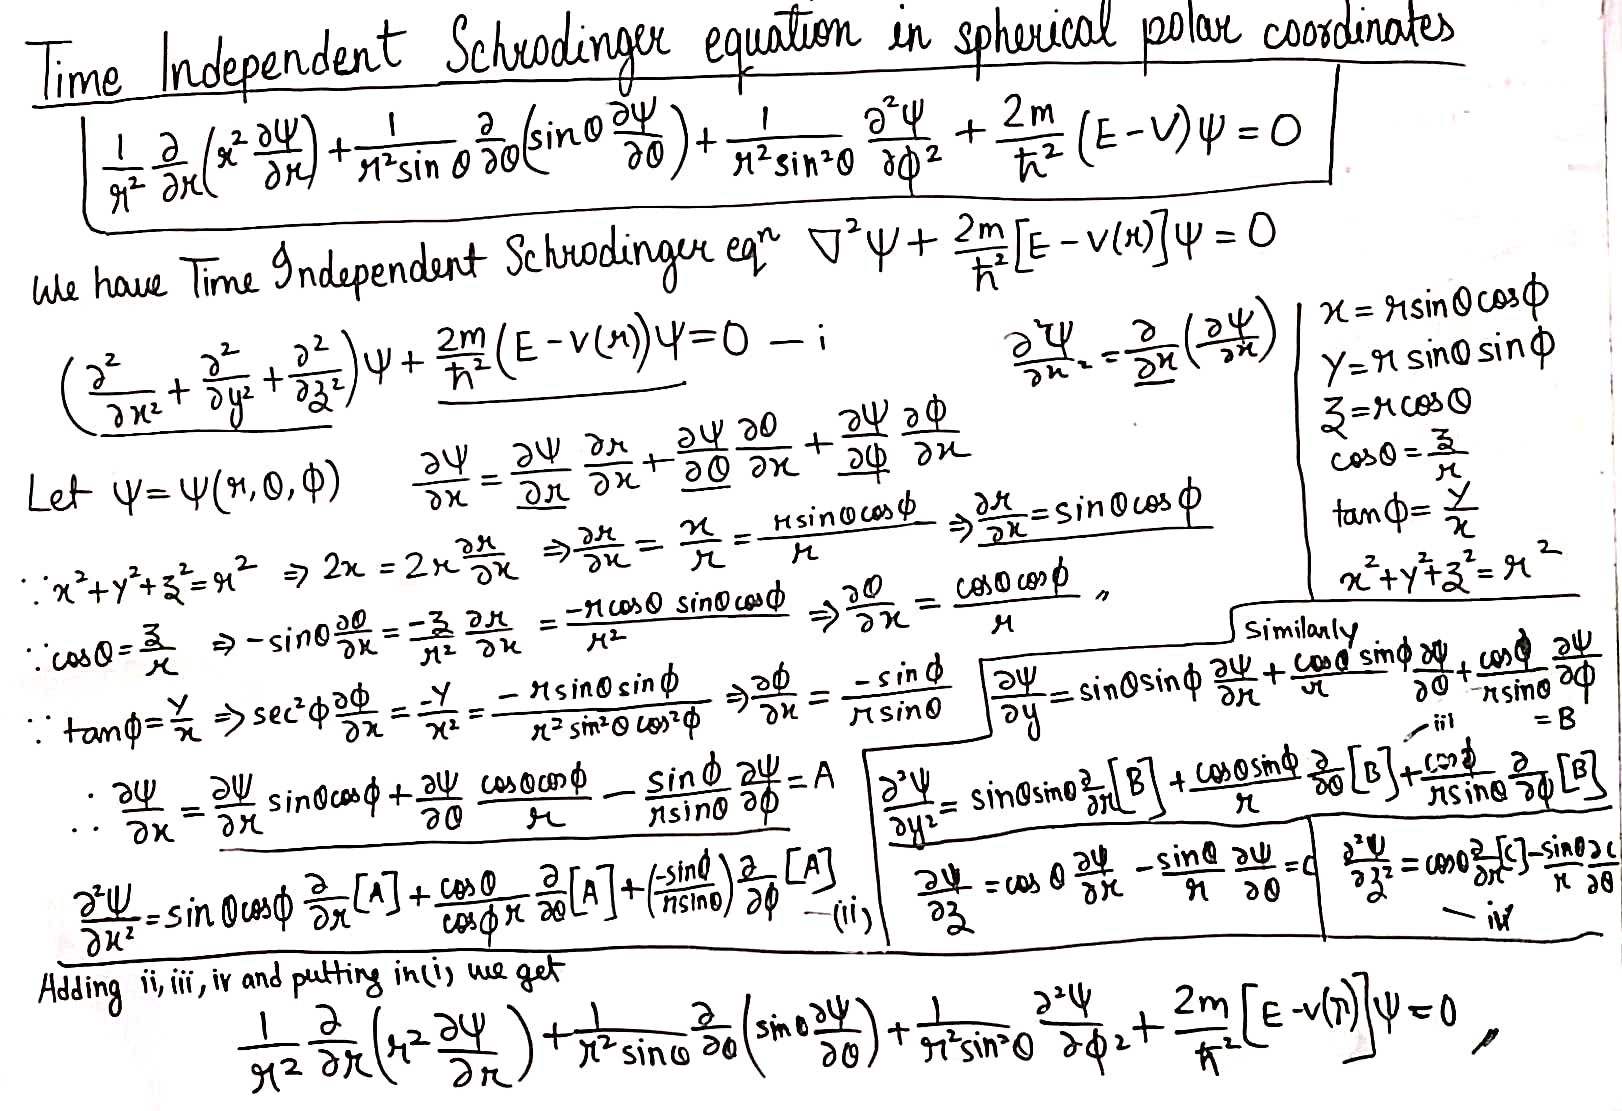 Time Independent Schrodinger equation in spherical polar coordinates
1/r² ∂/∂r (r² ∂Ψ/∂r) + 1/(r² sin θ) ∂/∂θ (sin θ ∂Ψ/∂θ) + 1/(r² sin²θ) ∂²Ψ/∂ϕ² + 2m/ħ² (E – V) Ψ = 0
We have Time Independent Schrodinger eqⁿ ∇²Ψ + 2m/ħ² [E – V(r)] Ψ = 0
(∂²/∂x² + ∂²/∂y² + ∂²/∂z²) Ψ + 2m/ħ² (E – V(r)) Ψ = 0 — i
∂²Ψ/∂x² = ∂/∂x (∂Ψ/∂x)
x = r sin θ cos ϕ
y = r sin θ sin ϕ
z = r cos θ
cos θ = z/r
tan ϕ = y/x
x² + y² + z² = r²
Let Ψ = Ψ(r, θ, ϕ) ∂Ψ/∂x = ∂Ψ/∂r ∂r/∂x + ∂Ψ/∂θ ∂θ/∂x + ∂Ψ/∂ϕ ∂ϕ/∂x
∵ x² + y² + z² = r² ⇒ 2x = 2r ∂r/∂x ⇒ ∂r/∂x = x/r = r sin θ cos ϕ / r ⇒ ∂r/∂x = sin θ cos ϕ
∵ cos θ = z/r ⇒ – sin θ ∂θ/∂x = –z/r² ∂r/∂x = –r cos θ sin θ cos ϕ / r² ⇒ ∂θ/∂x = cos θ cos ϕ / r "
∵ tan ϕ = y/x ⇒ sec²ϕ ∂ϕ/∂x = –y/x² = – r sin θ sin ϕ / (r² sin²θ cos²ϕ) ⇒ ∂ϕ/∂x = – sin ϕ / (r sin θ)
Similarly
∂Ψ/∂y = sin θ sin ϕ ∂Ψ/∂r + cos θ sin ϕ / r ∂Ψ/∂θ + cos ϕ / (r sin θ) ∂Ψ/∂ϕ
— iii = B
∴ ∂Ψ/∂x = ∂Ψ/∂r sin θ cos ϕ + ∂Ψ/∂θ cos θ cos ϕ / r – sin ϕ / (r sin θ) ∂Ψ/∂ϕ = A
∂²Ψ/∂y² = sin θ sin θ ∂/∂r [B] + cos θ sin ϕ / r ∂/∂θ [B] + cos ϕ / (r sin θ) ∂/∂ϕ [B]
∂²Ψ/∂x² = sin θ cos ϕ ∂/∂r [A] + cos θ / (cos ϕ r) ∂/∂θ [A] + (–sin ϕ / (r sin θ)) ∂/∂ϕ [A] — (ii)
∂Ψ/∂z = cos θ ∂Ψ/∂r – sin θ / r ∂Ψ/∂θ = C
∂²Ψ/∂z² = cos θ ∂/∂r [C] – sin θ / r ∂C/∂θ
— iv
Adding ii, iii, iv and putting in (i) we get
1/r² ∂/∂r (r² ∂Ψ/∂r) + 1/(r² sin θ) ∂/∂θ (sin θ ∂Ψ/∂θ) + 1/(r² sin²θ) ∂²Ψ/∂ϕ² + 2m/ħ² [E – V(r)] Ψ = 0